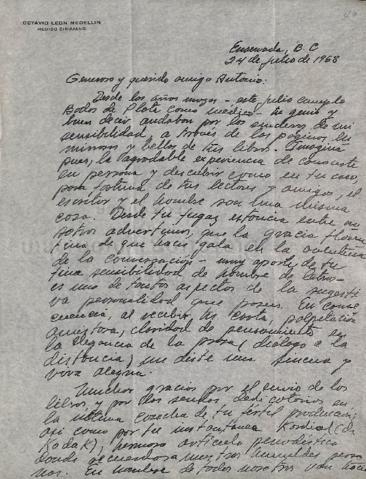 OCTAVIO LEON MEDELLIN
MEDICO CIRUJANO
Ensenada, B. C
24 de julio de 1968
Generoso y querido amigo Antonio:
Desde los años mozos - este julio cumplo
Bodas de Plata como médico - tu genio y
buen decir andaban por los senderos de mi
sensibilidad, a través de las páginas
y bellas de tus libros. Imagina
pues, la agradable experiencia de conocerte
en persona y descubrir como en tu caso,
para fortuna de tus lectores y amigos, el
escritor y el hombre son una misma
cosa. Desde tu fugaz estancia entre no-
sotros advertimos, que la gracia
de que haces gala en la aventura
de la conversación - muy aparte de tu
fina sensibilidad de hombre de letras -
es uno de tantos aspectos de la sugesti-
va personalidad que posees. En conse-
cuencia, al recibir tu carta, palpitación
amistosa, claridad de pensamiento en
la elegancia de la prosa, diálogo a la
distancia, me diste una sincera y
viva alegría.
Muchas gracias por el envío de los
libros, y por las sendas dedicatorias en
la cosecha de tu fértil producción
así como por tu instantánea Kodial (de
Kodak), hermoso artículo periodístico
donde
En nombre de todos nosotros van